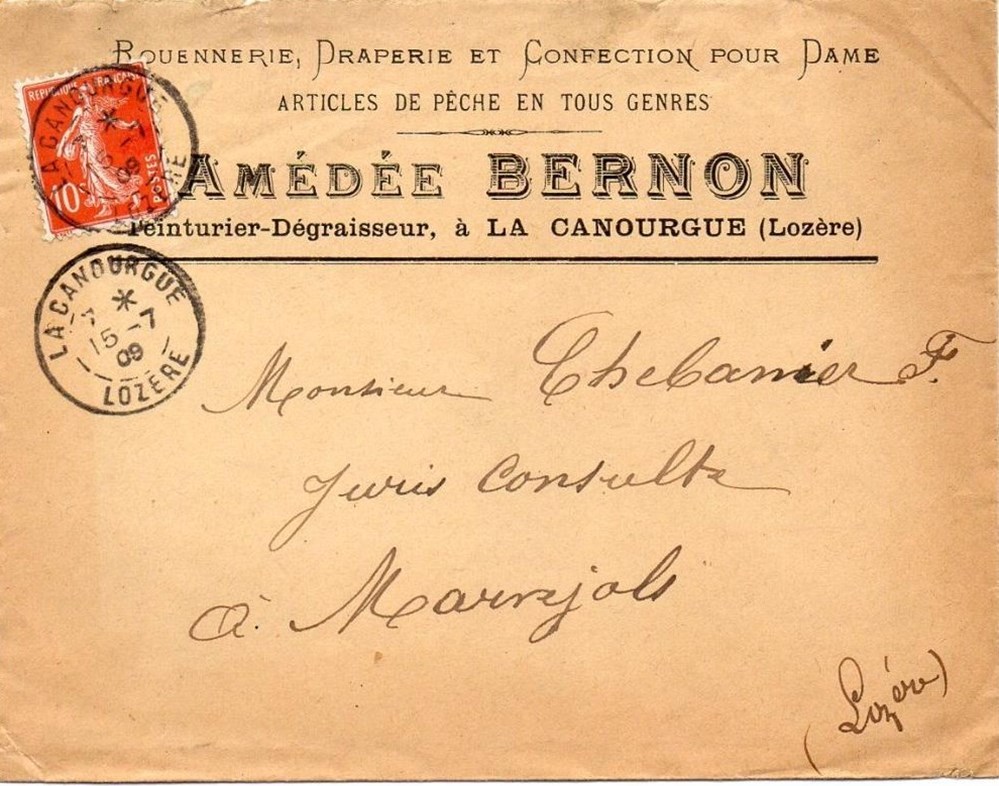 ROUENNERIE, DRAPERIE ET CONFECTION POUR DAME
ARTICLES DE PÊCHE EN TOUS GENRES
AMÉDÉE BERNON
Teinturier-Dégraisseur, à LA CANOURGUE (Lozère)
REPUBLIQUE FRANÇAISE
10c
POSTES
LA CANOURGUE
15 - 7
09
LOZÈRE
LA CANOURGUE
7
15 - 7
09
LOZÈRE
Monsieur Chebanier F.
Juris Consulte
à Marvejols
(Lozère)